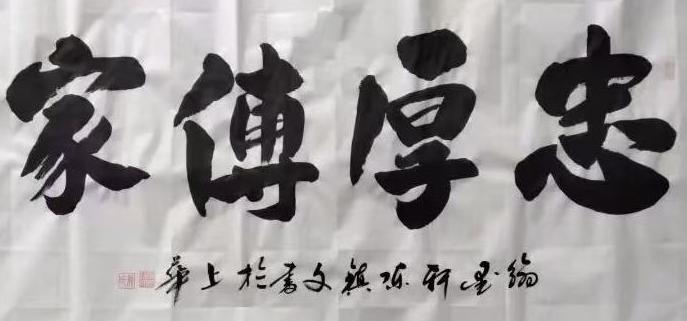 忠厚傳家
翰墨軒陈鎮文書於上華